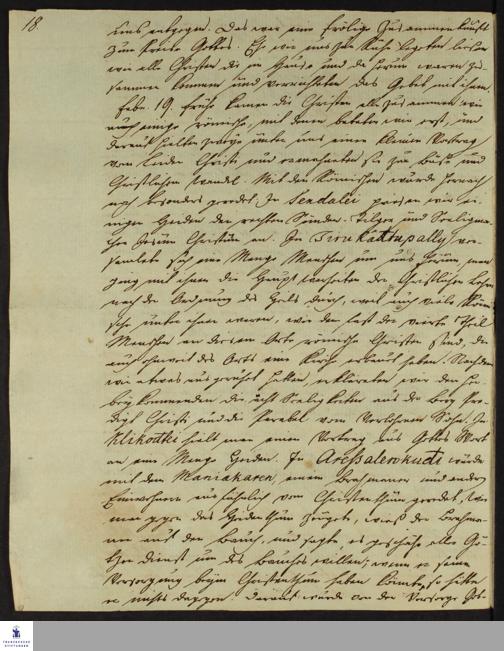 18.
uns entgegen. Das war eine fröliche Zusammenkunft
zum Preise Gottes. Ehe wir uns zur Ruhe legten ließen
wir alle Christen die im Hause und da herum waren zu-
sammen kommen und verrichteten das Gebet mit ihnen.
Febr. 19. frühe kamen die Christen alle zusammen wie
auch einige römische, mit denen beteten wir erst, und
darauf hielten wir ihnen einen kleinen Vortrag
vom Leiden Christi und ermahnten sie zur Buße und
Christlichen Wandel. Mit den Römischen wurde hernach
noch besonders geredet. In Sendalei priesen wir ei-
nigen Heiden den rechten Sünden-Tilger und Seeligma-
cher Jesum Christum an. In Tirukattupally ver-
samlete sich eine Menge Menschen um uns herum man
ging mit ihnen die Haupt wahrheiten der Christlichen Lehre
nach der Ordnung des Heils durch, weil auch viele Römi-
sche unter ihnen waren, wie denn fast der vierte Theil
Menschen an diesem Orte römische Christen sind, die
auch ohnweit des Orts eine Kirche erbaut haben. Nachdem
wir etwas ausgeruhet hatten, erklärten wir den her-
beykommenden die acht Seeligkeiten aus der Berg Pre-
digt Christi und die Parabel vom Verlohrnen Sohn. In
Kilikottei hielt man einen Vortrag aus Gottes Wort
an eine Menge Heiden. In Areßalenkudi wurde
mit dem Maniakaren, einem Brahmanen und andern
Einwohnern ausführlich vom Christenthum geredet,
man gegen das Heidenthum zeugete, wies der Brahma-
ne auf den Bauch, und sagte es geschähe alle Gö-
tzendienst um des Bauches willen; wenn er seine
Versorgung beym Christenthum haben könnte, so hätte
er nichts dagegen. Darauf wurde von der Vorsorge Got-
FRANCKESCHE
STIFTUNGEN